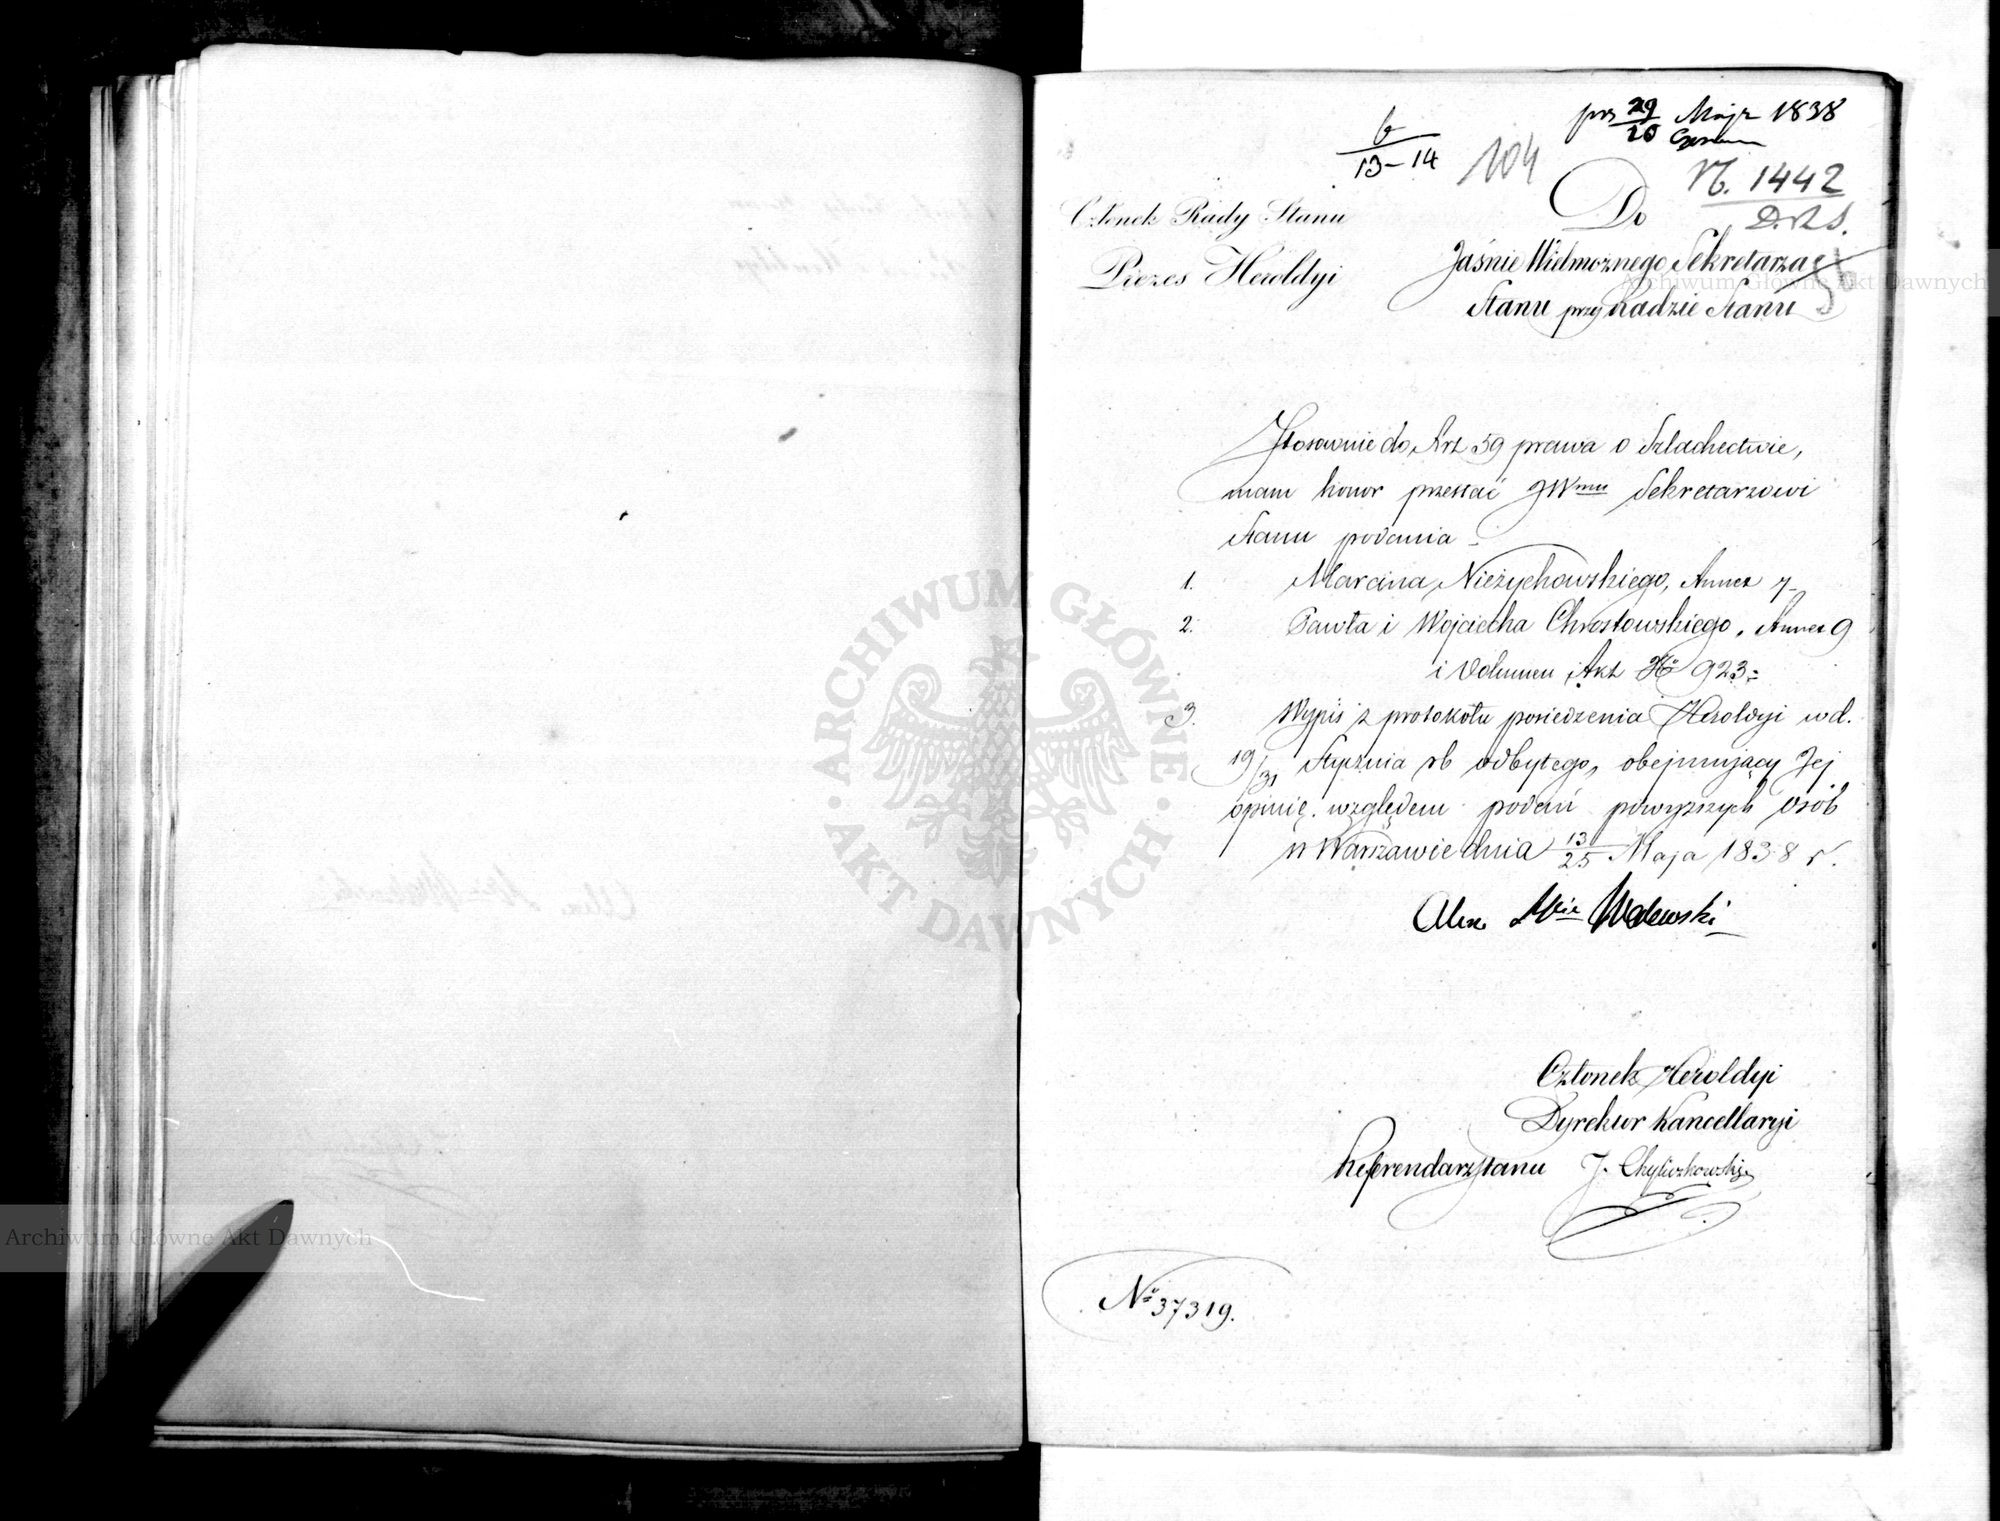 prs 29 Maja 1838
b
13-14
104
N. 1442
Członek Rady Stanu
Prezes Heroldyi
Do
Jaśnie Wielmożnego Sekretarza
Stanu przy Radzie Stanu
Stosownie do Art 59 prawa o Szlachectwie,
mam honor przesłać JWmu Sekretarzowi
Stanu podania -
1. Marcina Nieżychowskiego, Annex 7-
2. Pawła i Wojciecha Chrostowskiego, Annex 9
i Volumen Akt No 923=
3. Wypis z protokółu posiedzenia Heroldyi w d.
19/31 Stycznia rb odbytego, obejmujący Jej
opinię względem podań powyższych osób
w Warszawie dnia 13/25 Maja 1838 r.
Alex Walewski
Członek Heroldyi
Dyrektor Kancellaryi
Referendarz Stanu J. Chyliczkowski
No 37319.
ARCHIWUM GŁÓWNE
AKT DAWNYCH
Archiwum Główne Akt Dawnych
Archiwum Główne Akt Dawnych